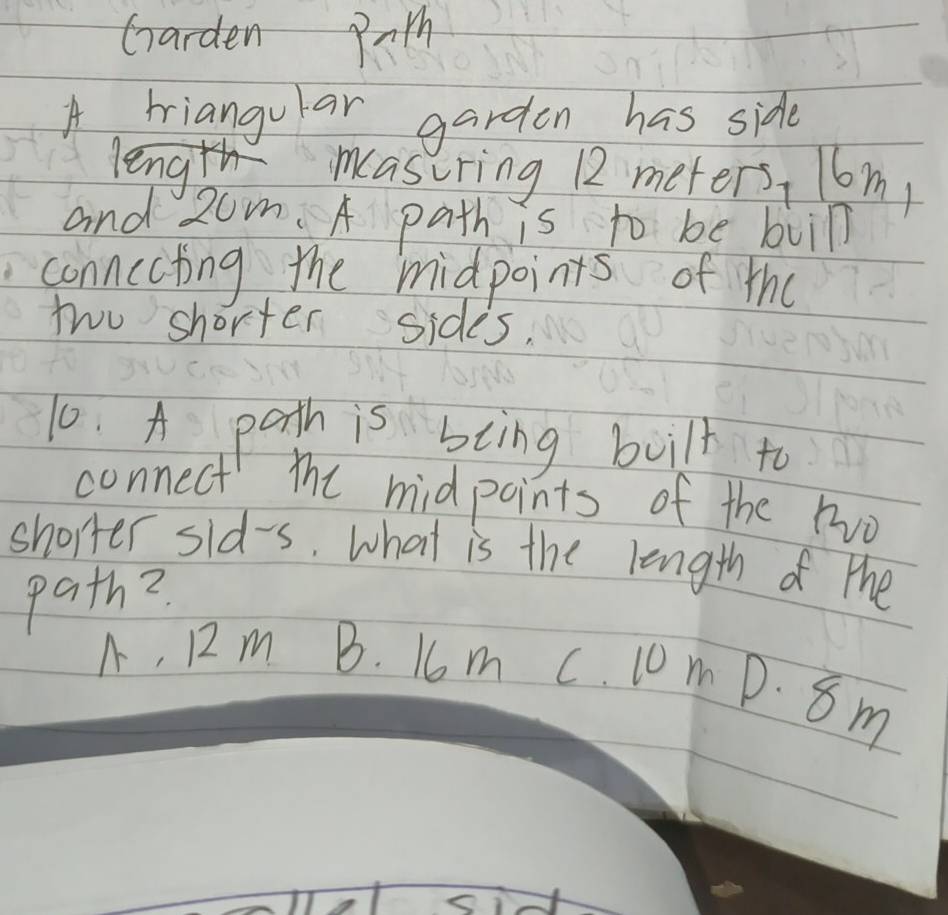 Garden Path
A triangular garden has side
length measuring 12 meters, 16m,
and 20m. A path is to be built
connecting the midpoints of the
two shorter sides.
10. A path is being built to
connect the midpoints of the two
shorter sid-s. What is the length of the
path?.
A. 12 m B. 16 m C. 10 m D. 8 m